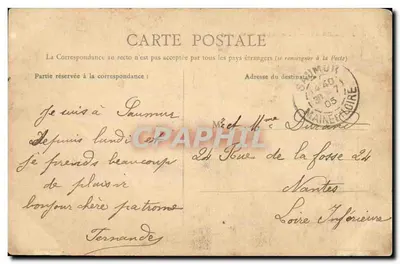 CARTE POSTALE
La Correspondance au recto n'est pas acceptée par tous les pays étrangers (se renseigner à la Poste)
Partie réservée à la correspondance :
Adresse du destinataire
SAUMUR
05
MAINE-ET-LOIRE
Je suis à Saumur
depuis lundi
je prends beaucoup
de plaisir
bonjour chère patronne
Fernande
Mr et Mme Durand
24 Rue de la fosse 24
Nantes
Loire Inférieure
CPAPHIL